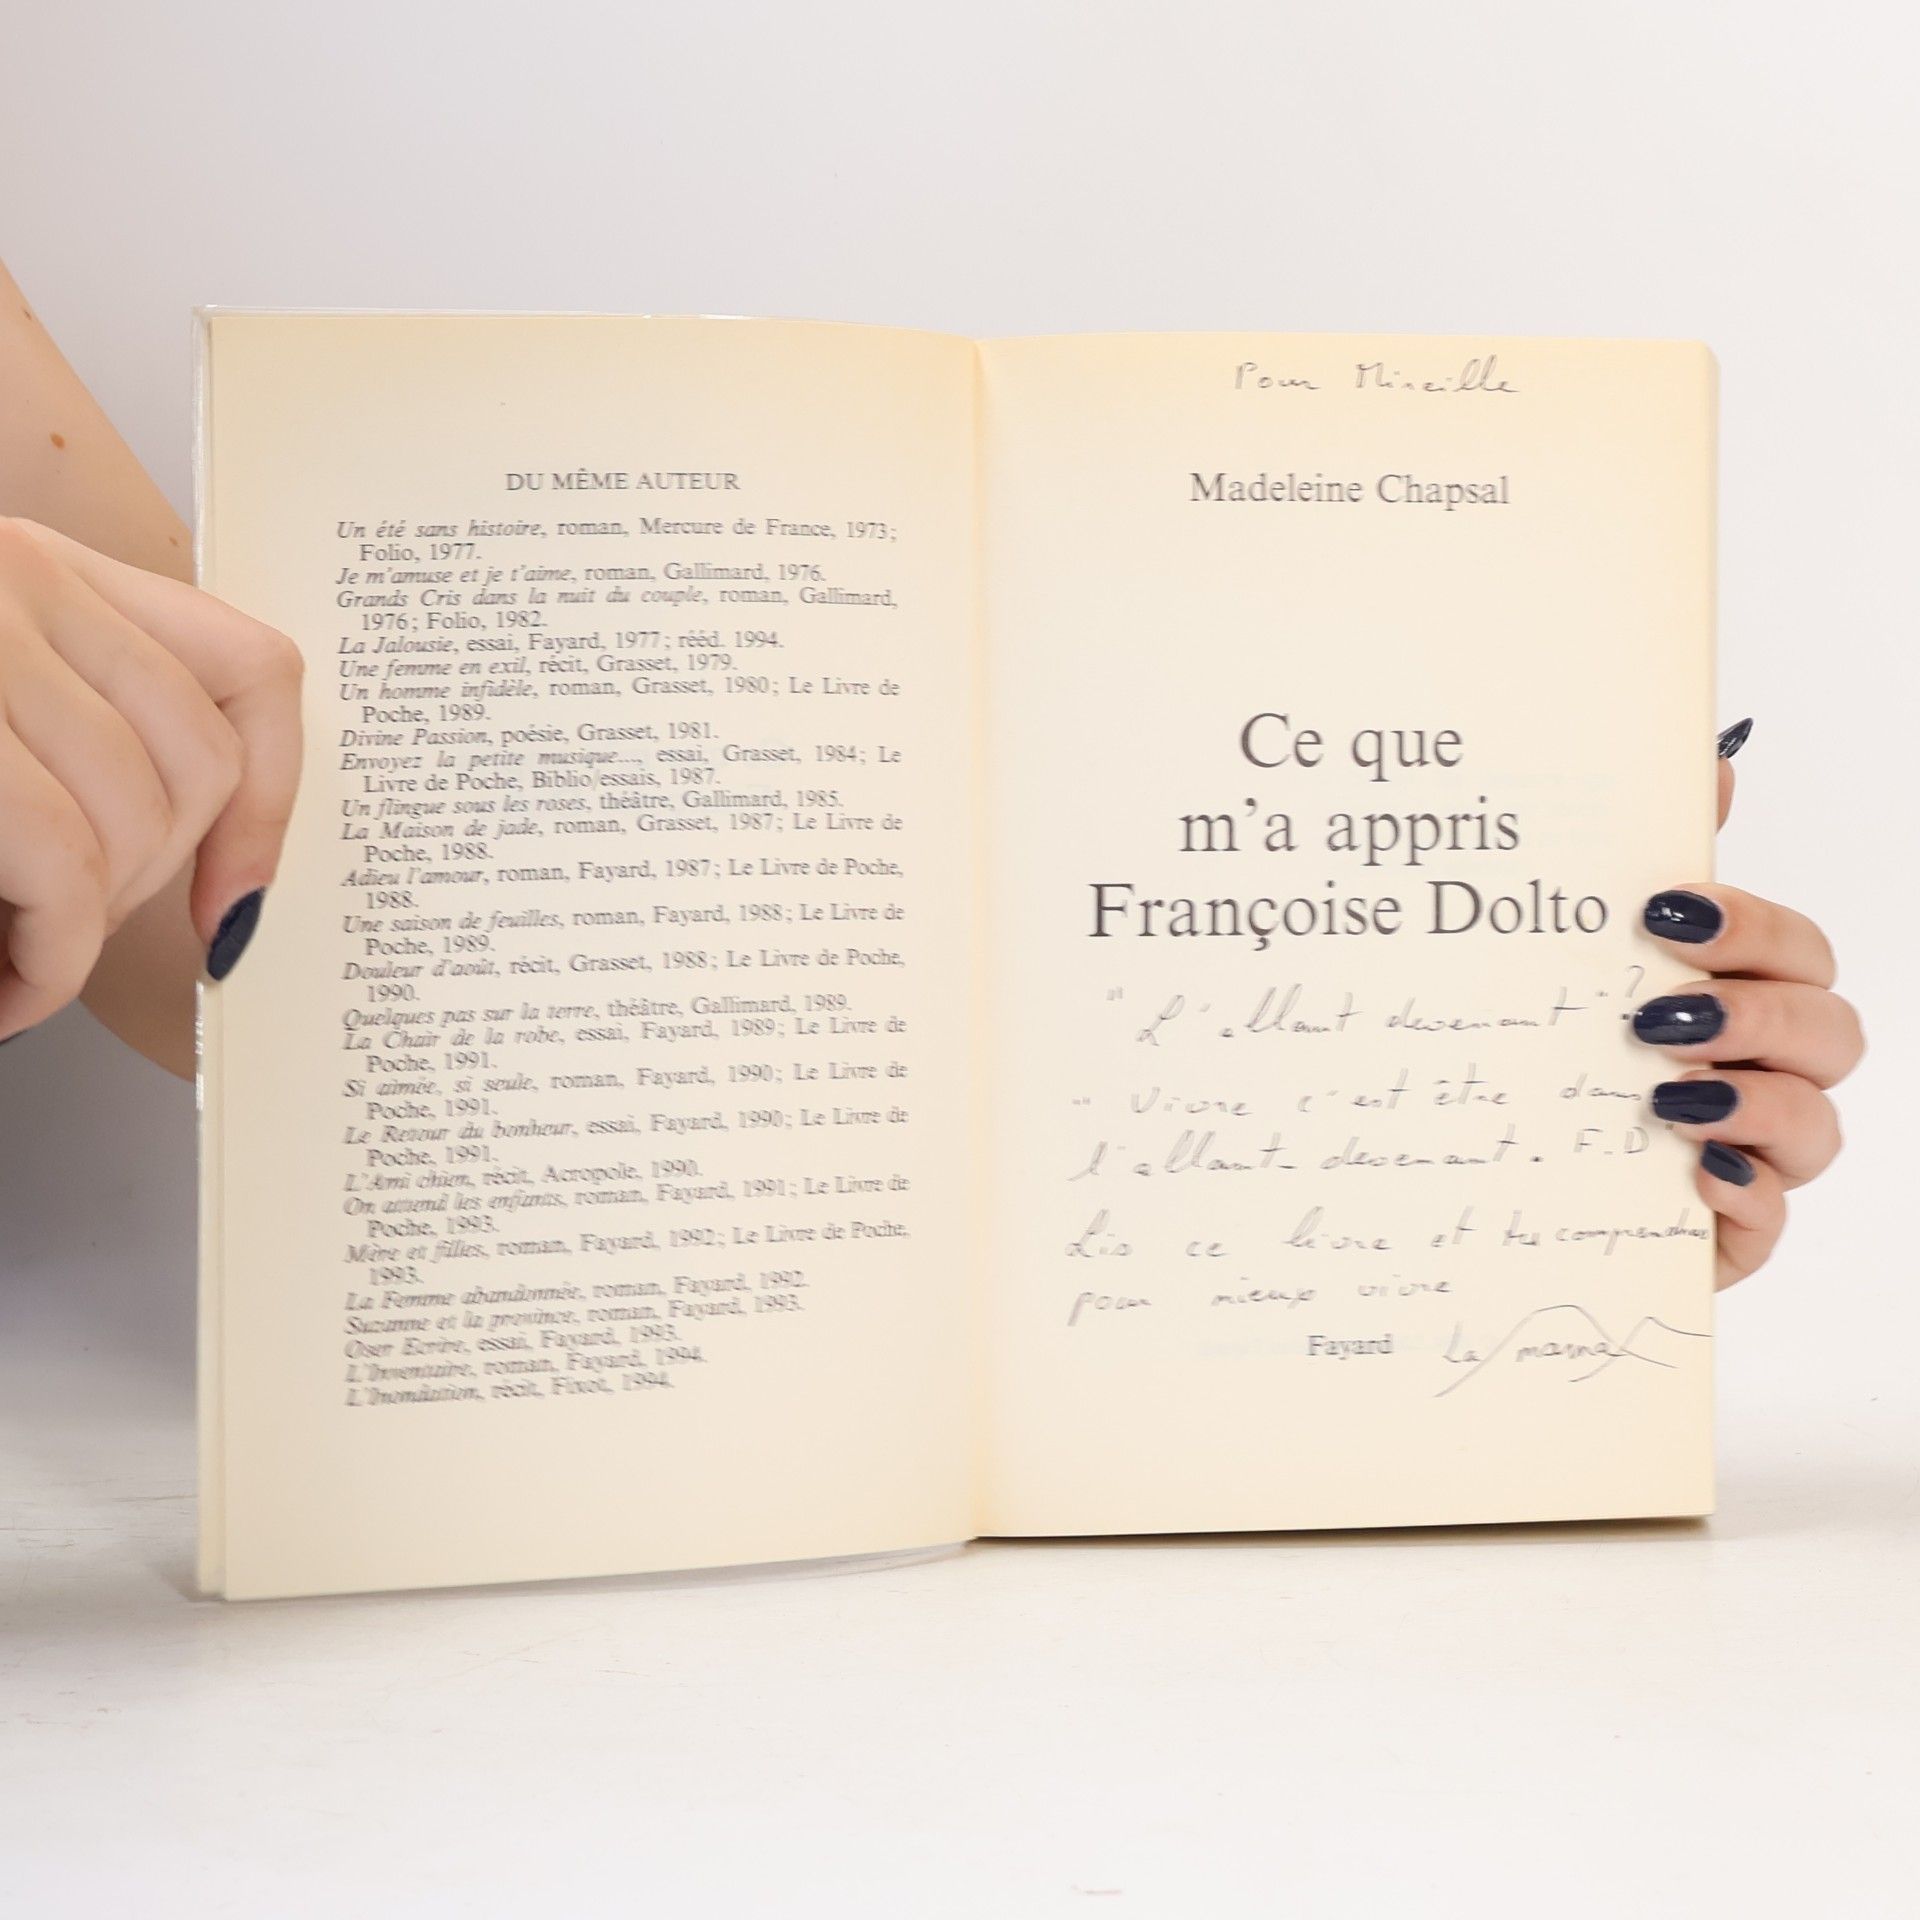 DU MÊME AUTEUR
Un été sans histoire, roman, Mercure de France, 1973;
Folio, 1977.
Je m'amuse et je t'aime, roman, Gallimard, 1976.
Grands Cris dans la nuit du couple, roman, Gallimard,
1976; Folio, 1982.
La Jalousie, essai, Fayard, 1977; rééd. 1994.
Une femme en exil, récit, Grasset, 1979.
Un homme infidèle, roman, Grasset, 1980; Le Livre de
Poche, 1989.
Divine Passion, poésie, Grasset, 1981.
Envoyez la petite musique..., essai, Grasset, 1984; Le
Livre de Poche, Biblio/essais, 1987.
Un flingue sous les roses, théâtre, Gallimard, 1985.
La Maison de jade, roman, Grasset, 1987; Le Livre de
Poche, 1988.
Adieu l'amour, roman, Fayard, 1987; Le Livre de Poche,
1988.
Une saison de feuilles, roman, Fayard, 1988; Le Livre de
Poche, 1989.
Douleur d'août, récit, Grasset, 1988; Le Livre de Poche,
1990.
Quelques pas sur la terre, théâtre, Gallimard, 1989.
La Chair de la robe, essai, Fayard, 1989; Le Livre de
Poche, 1991.
Si aimée, si seule, roman, Fayard, 1990; Le Livre de
Poche, 1991.
Le Retour du bonheur, essai, Fayard, 1990; Le Livre de
Poche, 1991.
L'Ami chien, récit, Acropole, 1990.
On attend les enfants, roman, Fayard, 1991; Le Livre de
Poche, 1993.
Mère et filles, roman, Fayard, 1992; Le Livre de Poche,
1993.
La Femme abandonnée, roman, Fayard, 1992.
Suzanne et la province, roman, Fayard, 1993.
Oser Ecrire, essai, Fayard, 1993.
L'Inventaire, roman, Fayard, 1994.
L'Inondation, récit, Fixot, 1994.
Pour Mireille
Madeleine Chapsal
Ce que
m'a appris
Françoise Dolto
"L'allant devenant"?
"Vivre c'est être dans
l'allant-devenant. F.D"
Lis ce livre et tu comprendras
pour mieux vivre
Fayard